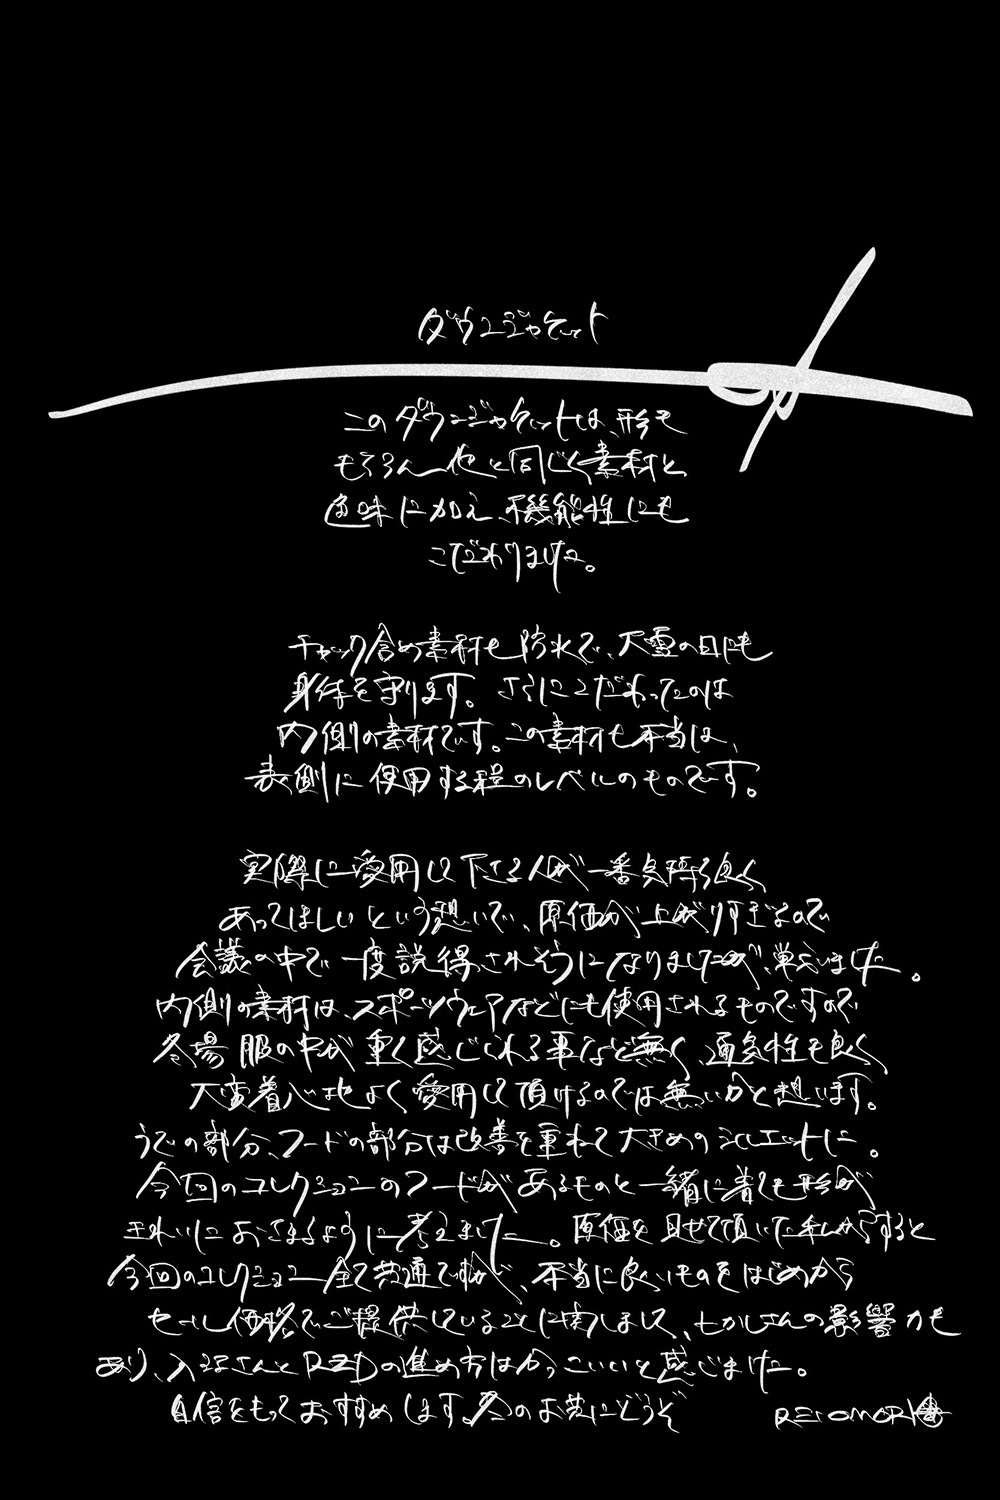 ダウンジャケット
このダウンジャケットは、形も
もちろん他と同じく素材と
色味に加え、機能性にも
こだわりました。
チャック含め素材も防水で、大雪の日にも
身体を守ります。さらにこだわったのは
内側の素材です。この素材も本当は、
表側に使用する程のレベルのものです。
実際に愛用して下さる人が一番気持ち良く
あってほしいという想いで、原価が上がりすぎるので
会議の中で一度説得されそうになりましたが、戦いました。
内側の素材は、スポーツウェアなどにも使用されるものですので
冬場服の中が重く感じられる事など無く、通気性も良く
大変着心地よく愛用して頂けるのでは無いかと想います。
うでの部分、フードの部分は改善を重ねて大きめのシルエットに。
今回のコレクションのフードがあるものと一緒に着ても形が
きれいにおさまるように考えました。原価を見せて頂いた私からすると
今回のコレクション全て共通ですが、本当に良いものをはじめから
セール価格でご提供していることに関しまして、たかしさんの影響力も
あり、さんとの進め方はかっこいいと感じました。
自信をもっておすすめします。冬のお供にどうぞ
REI OMORI